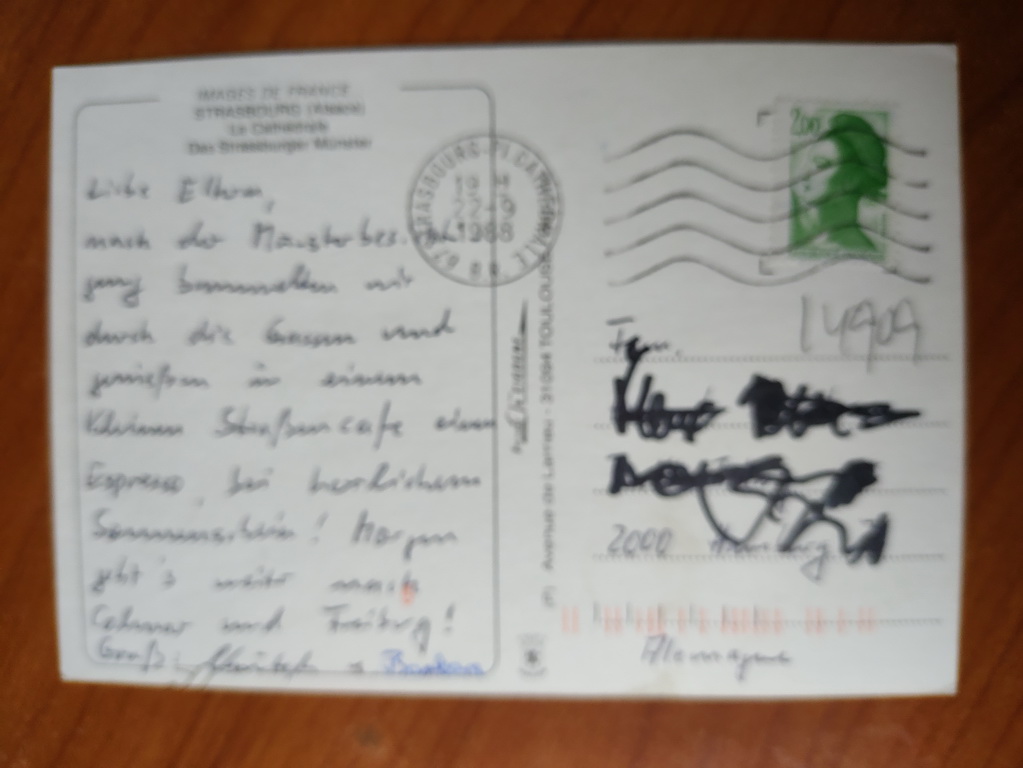 IMAGES DE FRANCE
STRASBOURG (Alsace)
La Cathédrale
Das Strassburger Münster
Liebe Eltern,
nach der
gung bummelten wir
durch die Gassen und
genießen in einem
kleinen Straßencafe einen
Espresso, bei herrlichem
Sonnenschein! Morgen
geht's weiter nach
Colmar und Freiburg!
Gruß
Barbara
STRASBOURG
1988
67
Avenue de Larrieu - 31094 TOULOUSE
2,00
14909
Fam.
2000 Hamburg
Allemagne